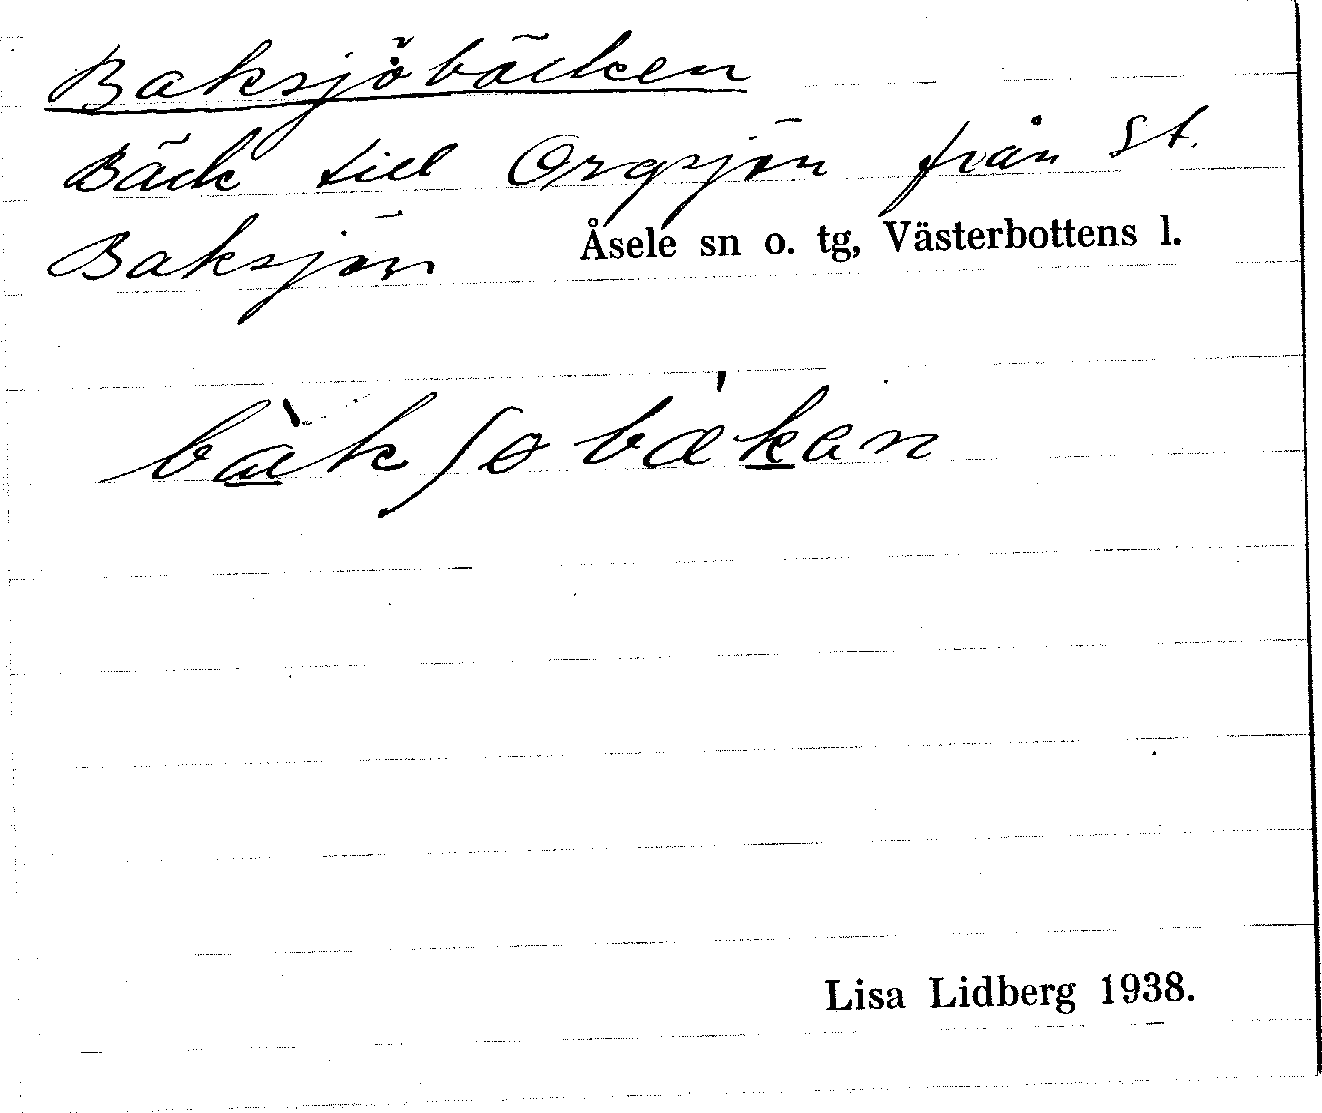 Baksjöbäcken
Bäck till Orgsjön från St.
Baksjön Åsele sn o. tg, Västerbottens l.
bàkʃøbækan
Lisa Lidberg 1938.